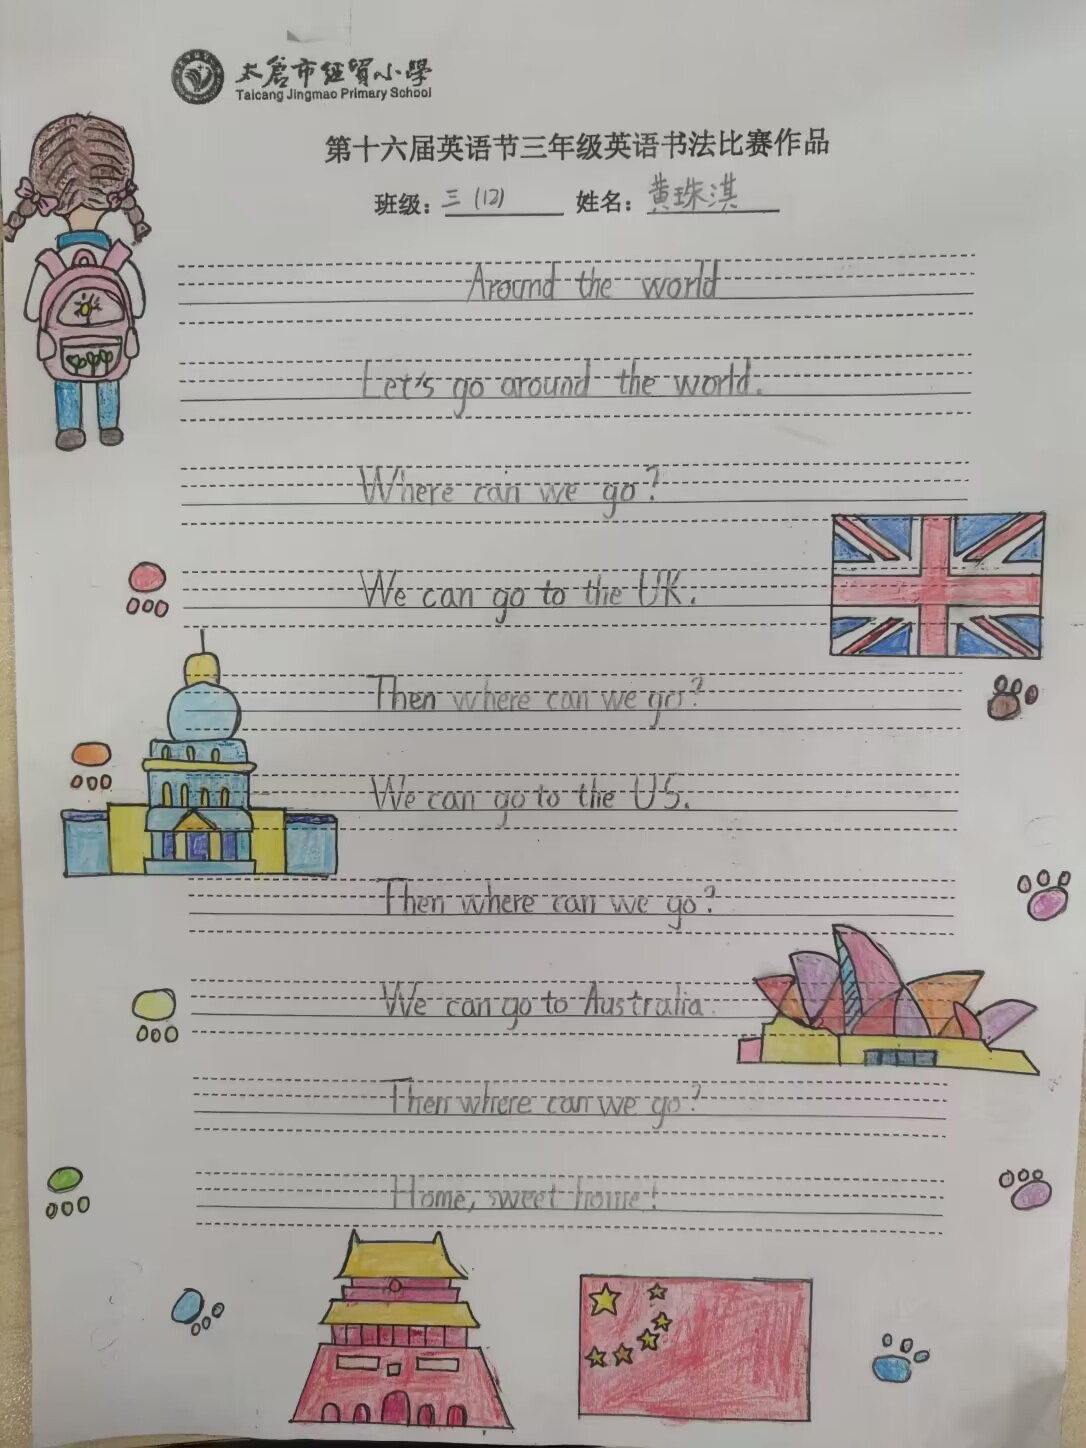 太倉市経貿小學
Taicang Jingmao Primary School
第十六届英语节三年级英语书法比赛作品
班级：三（12） 姓名：黄珠淇
Around the world
Let's go around the world.
Where can we go?
We can go to the UK.
Then where can we go?
We can go to the US.
Then where can we go?
We can go to Australia.
Then where can we go?
Home, sweet home!